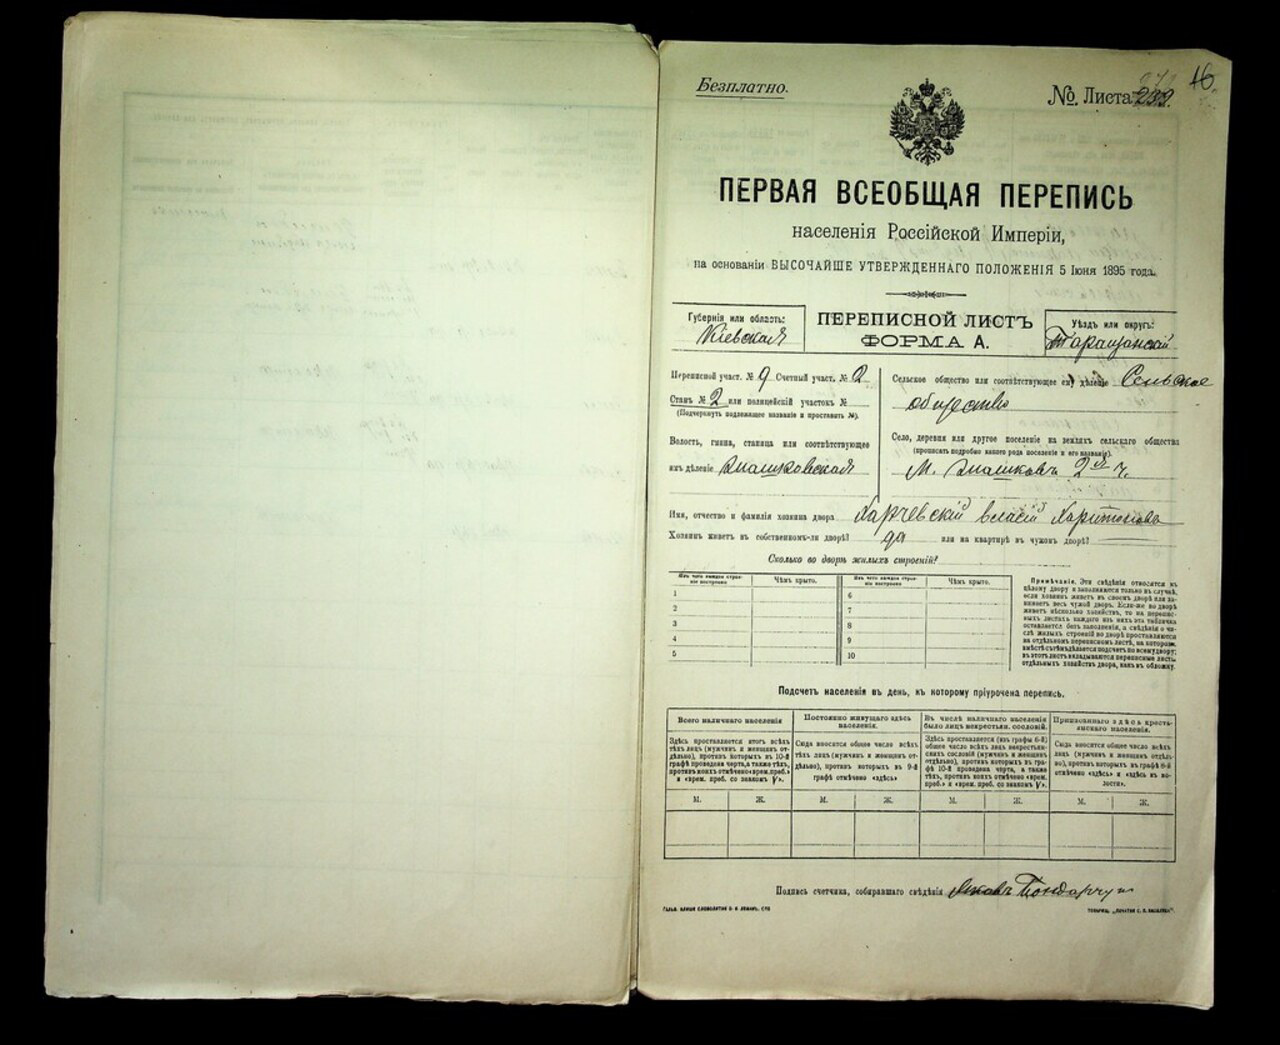 Безплатно.
№ Листа
16.
ПЕРВАЯ ВСЕОБЩАЯ ПЕРЕПИСЬ
населенія Россійской Имперіи,
на основаніи ВЫСОЧАЙШЕ УТВЕРЖДЕННАГО ПОЛОЖЕНІЯ 5 Іюня 1895 года.
Губернія или область:
Кіевская
ПЕРЕПИСНОЙ ЛИСТЪ
ФОРМА А.
Уѣздъ или округъ:
Таращанскій
Переписной участ. № 9 Счетный участ. № 2
Станъ № 2 или полицейскій участокъ №
(Подчеркнуть подлежащее названіе и проставить №).
Волость, гмина, станица или соотвѣтствующее
имъ дѣленіе
Сельское общество или соотвѣтствующее ему дѣленіе Сельское
общество
Село, деревня или другое поселеніе на земляхъ сельскаго общества
(прописать подробно какого рода поселеніе и его названіе).
М. 2й ч.
Имя, отчество и фамилія хозяина двора Харчевскій Власій Харитоновъ
Хозяинъ живетъ въ собственномъ-ли дворѣ? да или на квартирѣ въ чужомъ дворѣ?
Сколько во дворѣ жилыхъ строеній?
Изъ чего каждое строеніе построено
Чѣмъ крыто.
Изъ чего каждое строеніе построено
Чѣмъ крыто.
1
2
3
4
5
6
7
8
9
10
Примѣчаніе. Эти свѣдѣнія относятся къ
цѣлому двору и заполняются только въ случаѣ,
если хозяинъ живетъ въ своемъ дворѣ или занимаетъ
весь чужой дворъ. Если-же во дворѣ
живетъ нѣсколько хозяйствъ, то на переписныхъ
листахъ каждаго изъ нихъ эта табличка
оставляется безъ заполненія, а свѣдѣнія о числѣ
жилыхъ строеній во дворѣ проставляются
на отдѣльномъ переписномъ листѣ, на которомъ
вмѣстѣ съ тѣмъ дѣлается подсчетъ по всему двору;
въ этотъ листъ вкладываются переписные листы
отдѣльныхъ хозяйствъ двора, какъ въ обложку.
Подсчетъ населенія въ день, къ которому пріурочена перепись.
Всего наличнаго населенія
Постоянно живущаго здѣсь
населенія.
Въ числѣ наличнаго населенія
было лицъ некрестьян. сословій.
Приписаннаго здѣсь крестьянскаго
населенія.
Здѣсь проставляется итогъ всѣхъ
тѣхъ лицъ (мужчинъ и женщинъ отдѣльно),
противъ которыхъ въ 10-й
графѣ проведена черта, а также тѣхъ,
противъ коихъ отмѣчено «врем. преб.»
и «врем. преб. со знакомъ V».
Сюда вносится общее число всѣхъ
тѣхъ лицъ (мужчинъ и женщинъ отдѣльно),
противъ которыхъ въ 9-й
графѣ отмѣчено «здѣсь»
Здѣсь проставляется (изъ графы 6-й)
общее число всѣхъ лицъ некрестьянскихъ
сословій (мужчинъ и женщинъ
отдѣльно), противъ которыхъ въ графѣ
10-й проведена черта, а также
тѣхъ, противъ коихъ отмѣчено «врем.
преб.» и «врем. преб. со знакомъ V».
Сюда вносится общее число всѣхъ
лицъ (мужчинъ и женщинъ отдѣльно),
противъ которыхъ въ графѣ 8-й
отмѣчено «здѣсь» и «здѣсь въ волости».
М. Ж. М. Ж. М. Ж. М. Ж.
Подпись счетчика, собиравшаго свѣдѣнія Яковъ Бондарчукъ